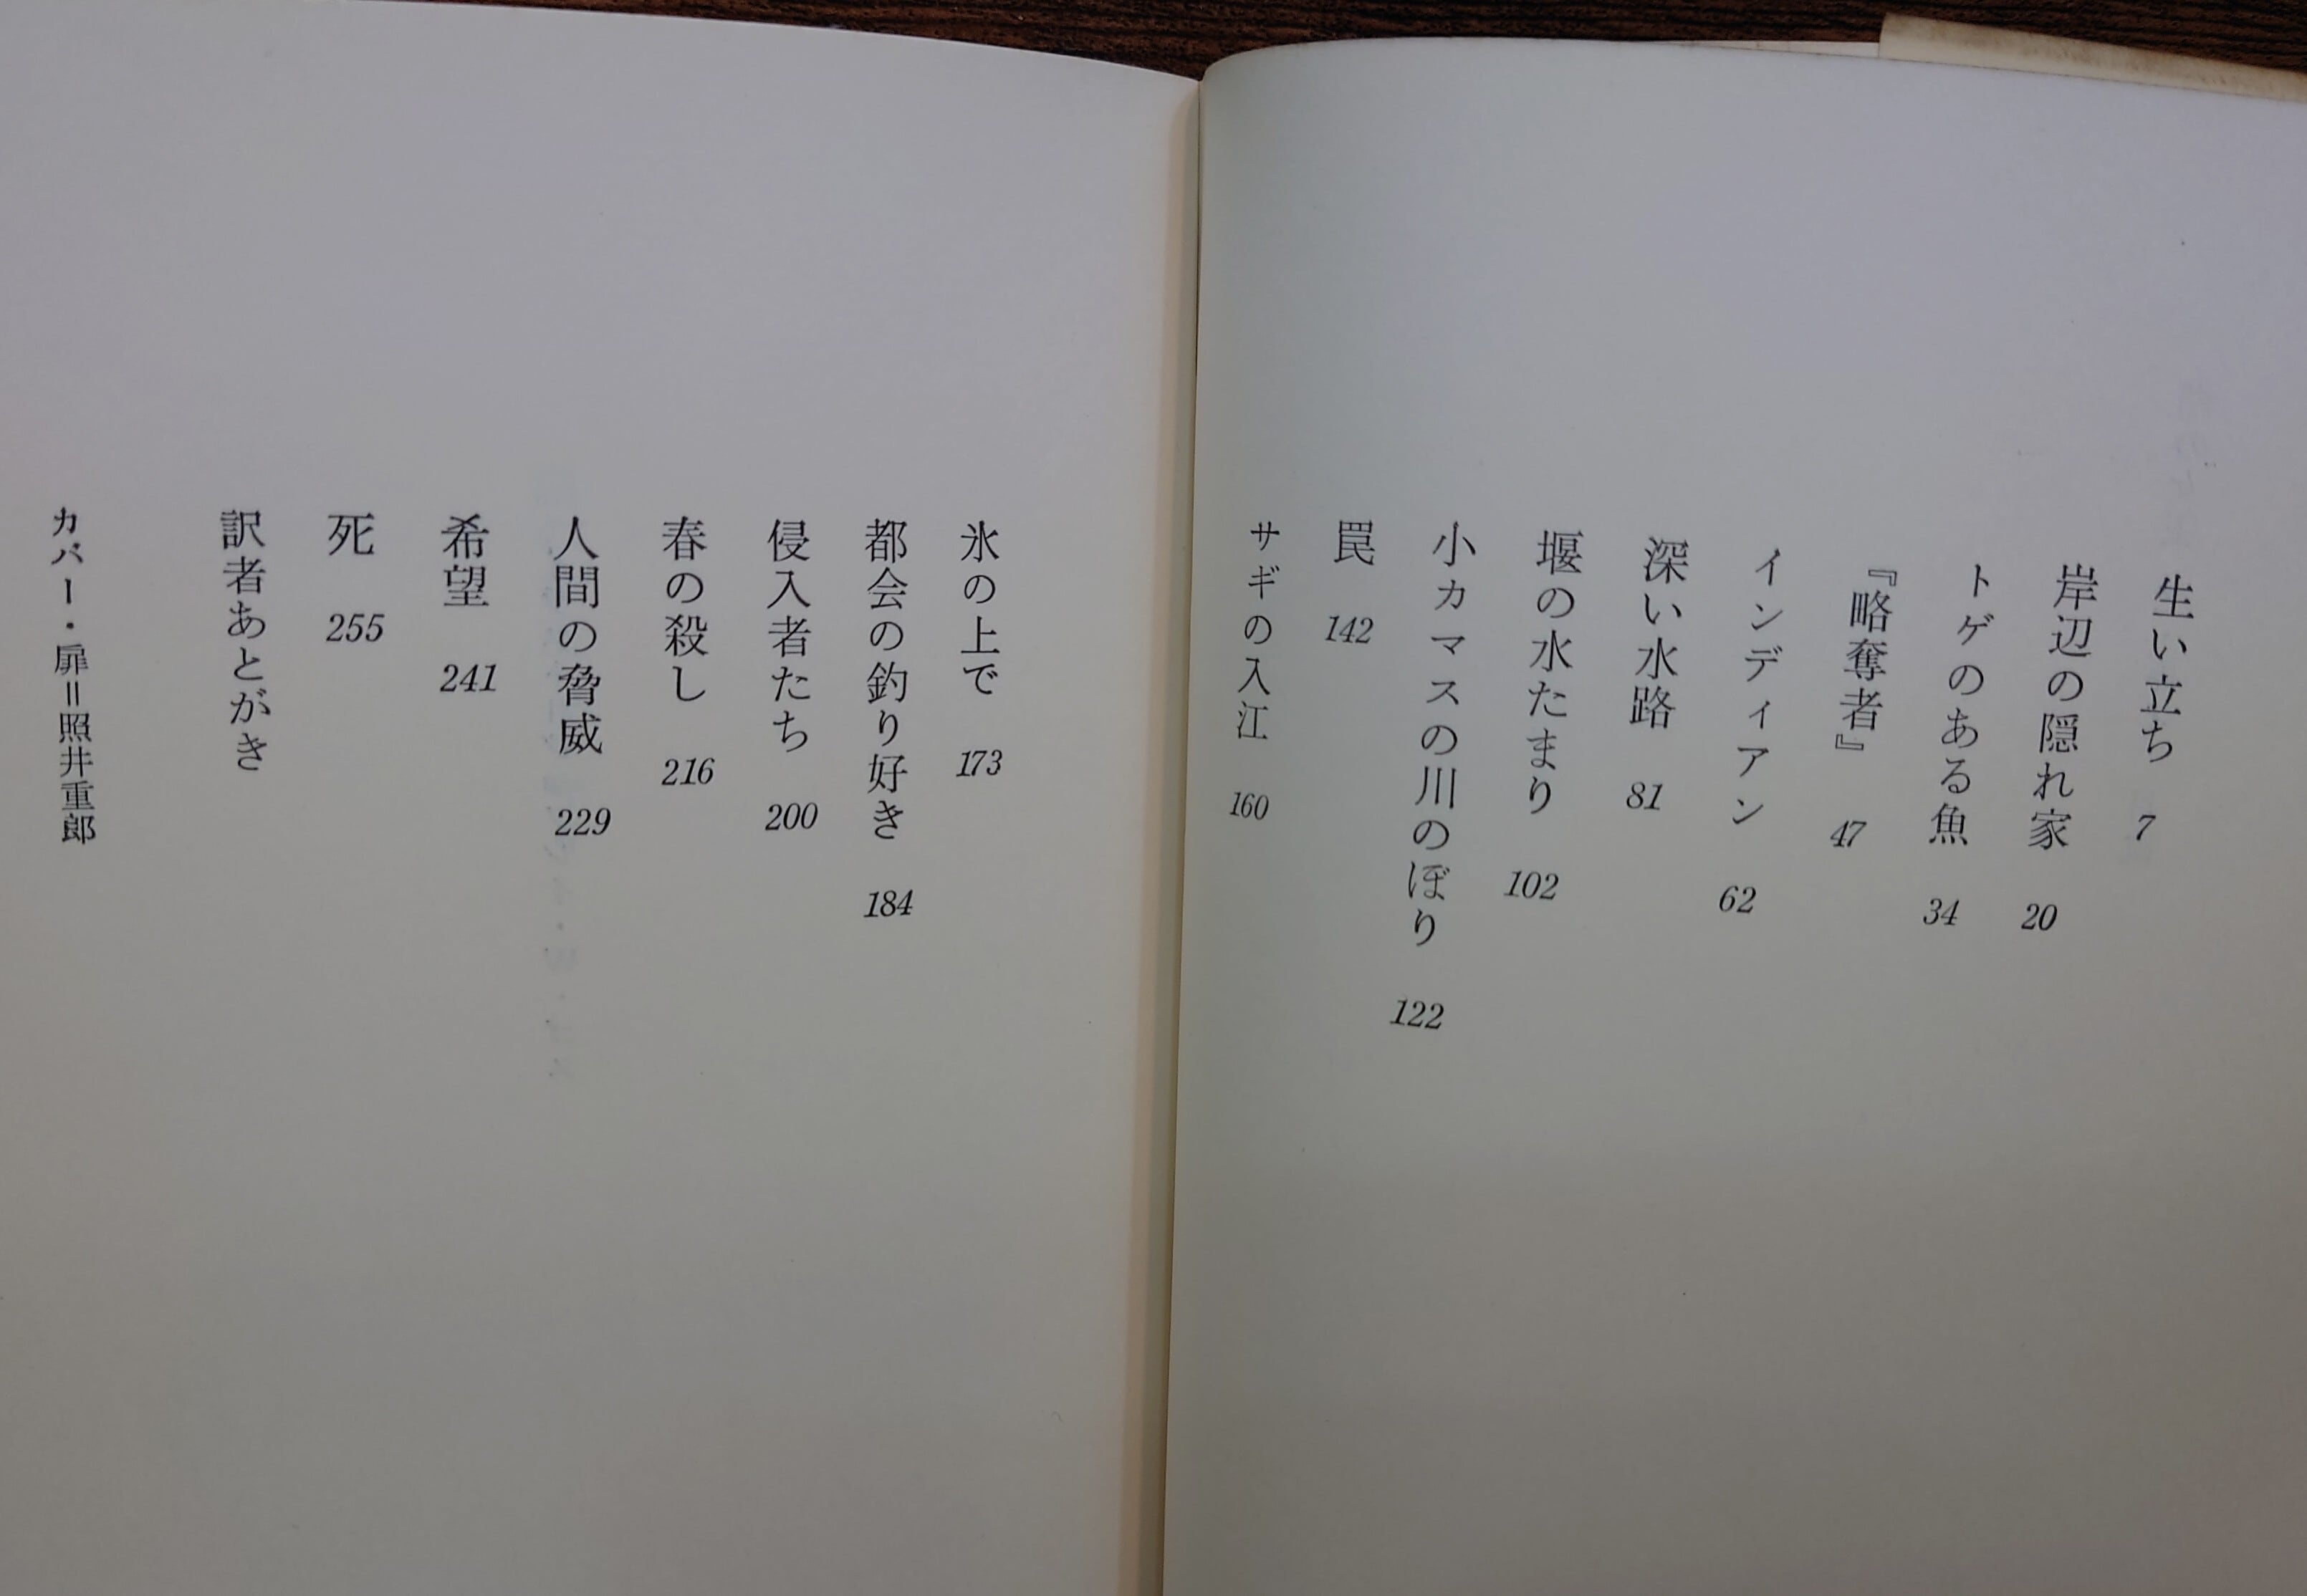 生い立ち 7
岸辺の隠れ家 20
トゲのある魚 34
『略奪者』 47
インディアン 62
深い水路 81
堰の水たまり 102
小カマスの川のぼり 122
罠 142
サギの入江 160
氷の上で 173
都会の釣り好き 184
侵入者たち 200
春の殺し 216
人間の脅威 229
希望 241
死 255
訳者あとがき
カバー・扉＝照井重郎